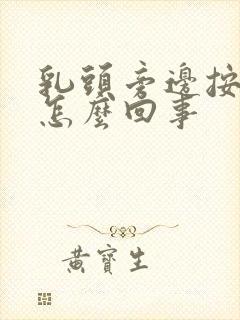 乳頭旁邊按
怎麼回事
黃寶生